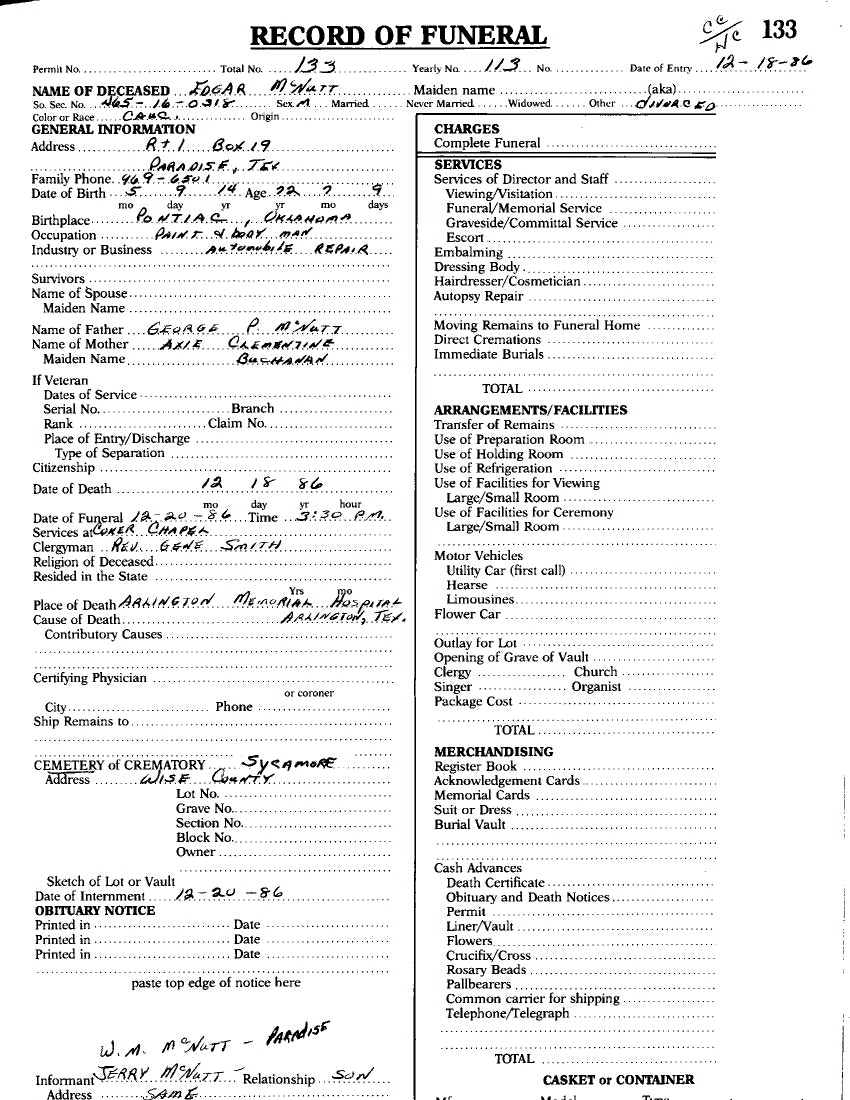 RECORD OF FUNERAL
CC/NC 133
Permit No. Total No. 133 Yearly No. 113 No. Date of Entry 12-18-86
NAME OF DECEASED EDGAR McNUTT Maiden name (aka)
So. Sec. No. 465-16-0318 Sex M Married Never Married Widowed Other DIVORCED
Color or Race CAUC. Origin
GENERAL INFORMATION
Address Rt 1 Box 19
PARADISE, TEX
Family Phone 969-6501
Date of Birth 5 9 14 Age 72 7 9
mo day yr yr mo days
Birthplace PONTIAC, OKLAHOMA
Occupation PAINT & BODY MAN
Industry or Business AUTOMOBILE REPAIR
Survivors
Name of Spouse
Maiden Name
Name of Father GEORGE P. McNUTT
Name of Mother AXIE CLEMENTINE
Maiden Name BUCHANAN
If Veteran
Dates of Service
Serial No. Branch
Rank Claim No.
Place of Entry/Discharge
Type of Separation
Citizenship
Date of Death 12 18 86
mo day yr hour
Date of Funeral 12-20-86 Time 3:30 P.M.
Services at COKER CHAPEL
Clergyman REV. GENE SMITH
Religion of Deceased
Resided in the State
Yrs mo
Place of Death ARLINGTON MEMORIAL HOSPITAL
Cause of Death ARLINGTON, TEX.
Contributory Causes
Certifying Physician
or coroner
City Phone
Ship Remains to
CEMETERY of CREMATORY SYCAMORE
Address WISE COUNTY
Lot No.
Grave No.
Section No.
Block No.
Owner
Sketch of Lot or Vault
Date of Internment 12-20-86
OBITUARY NOTICE
Printed in Date
Printed in Date
Printed in Date
paste top edge of notice here
W. M. McNUTT - PARADISE
Informant JERRY McNUTT Relationship SON
Address SAME
CHARGES
Complete Funeral
SERVICES
Services of Director and Staff
Viewing/Visitation
Funeral/Memorial Service
Graveside/Committal Service
Escort
Embalming
Dressing Body
Hairdresser/Cosmetician
Autopsy Repair
Moving Remains to Funeral Home
Direct Cremations
Immediate Burials
TOTAL
ARRANGEMENTS/FACILITIES
Transfer of Remains
Use of Preparation Room
Use of Holding Room
Use of Refrigeration
Use of Facilities for Viewing
Large/Small Room
Use of Facilities for Ceremony
Large/Small Room
Motor Vehicles
Utility Car (first call)
Hearse
Limousines
Flower Car
Outlay for Lot
Opening of Grave of Vault
Clergy Church
Singer Organist
Package Cost
TOTAL
MERCHANDISING
Register Book
Acknowledgement Cards
Memorial Cards
Suit or Dress
Burial Vault
Cash Advances
Death Certificate
Obituary and Death Notices
Permit
Liner/Vault
Flowers
Crucifix/Cross
Rosary Beads
Pallbearers
Common carrier for shipping
Telephone/Telegraph
TOTAL
CASKET or CONTAINER